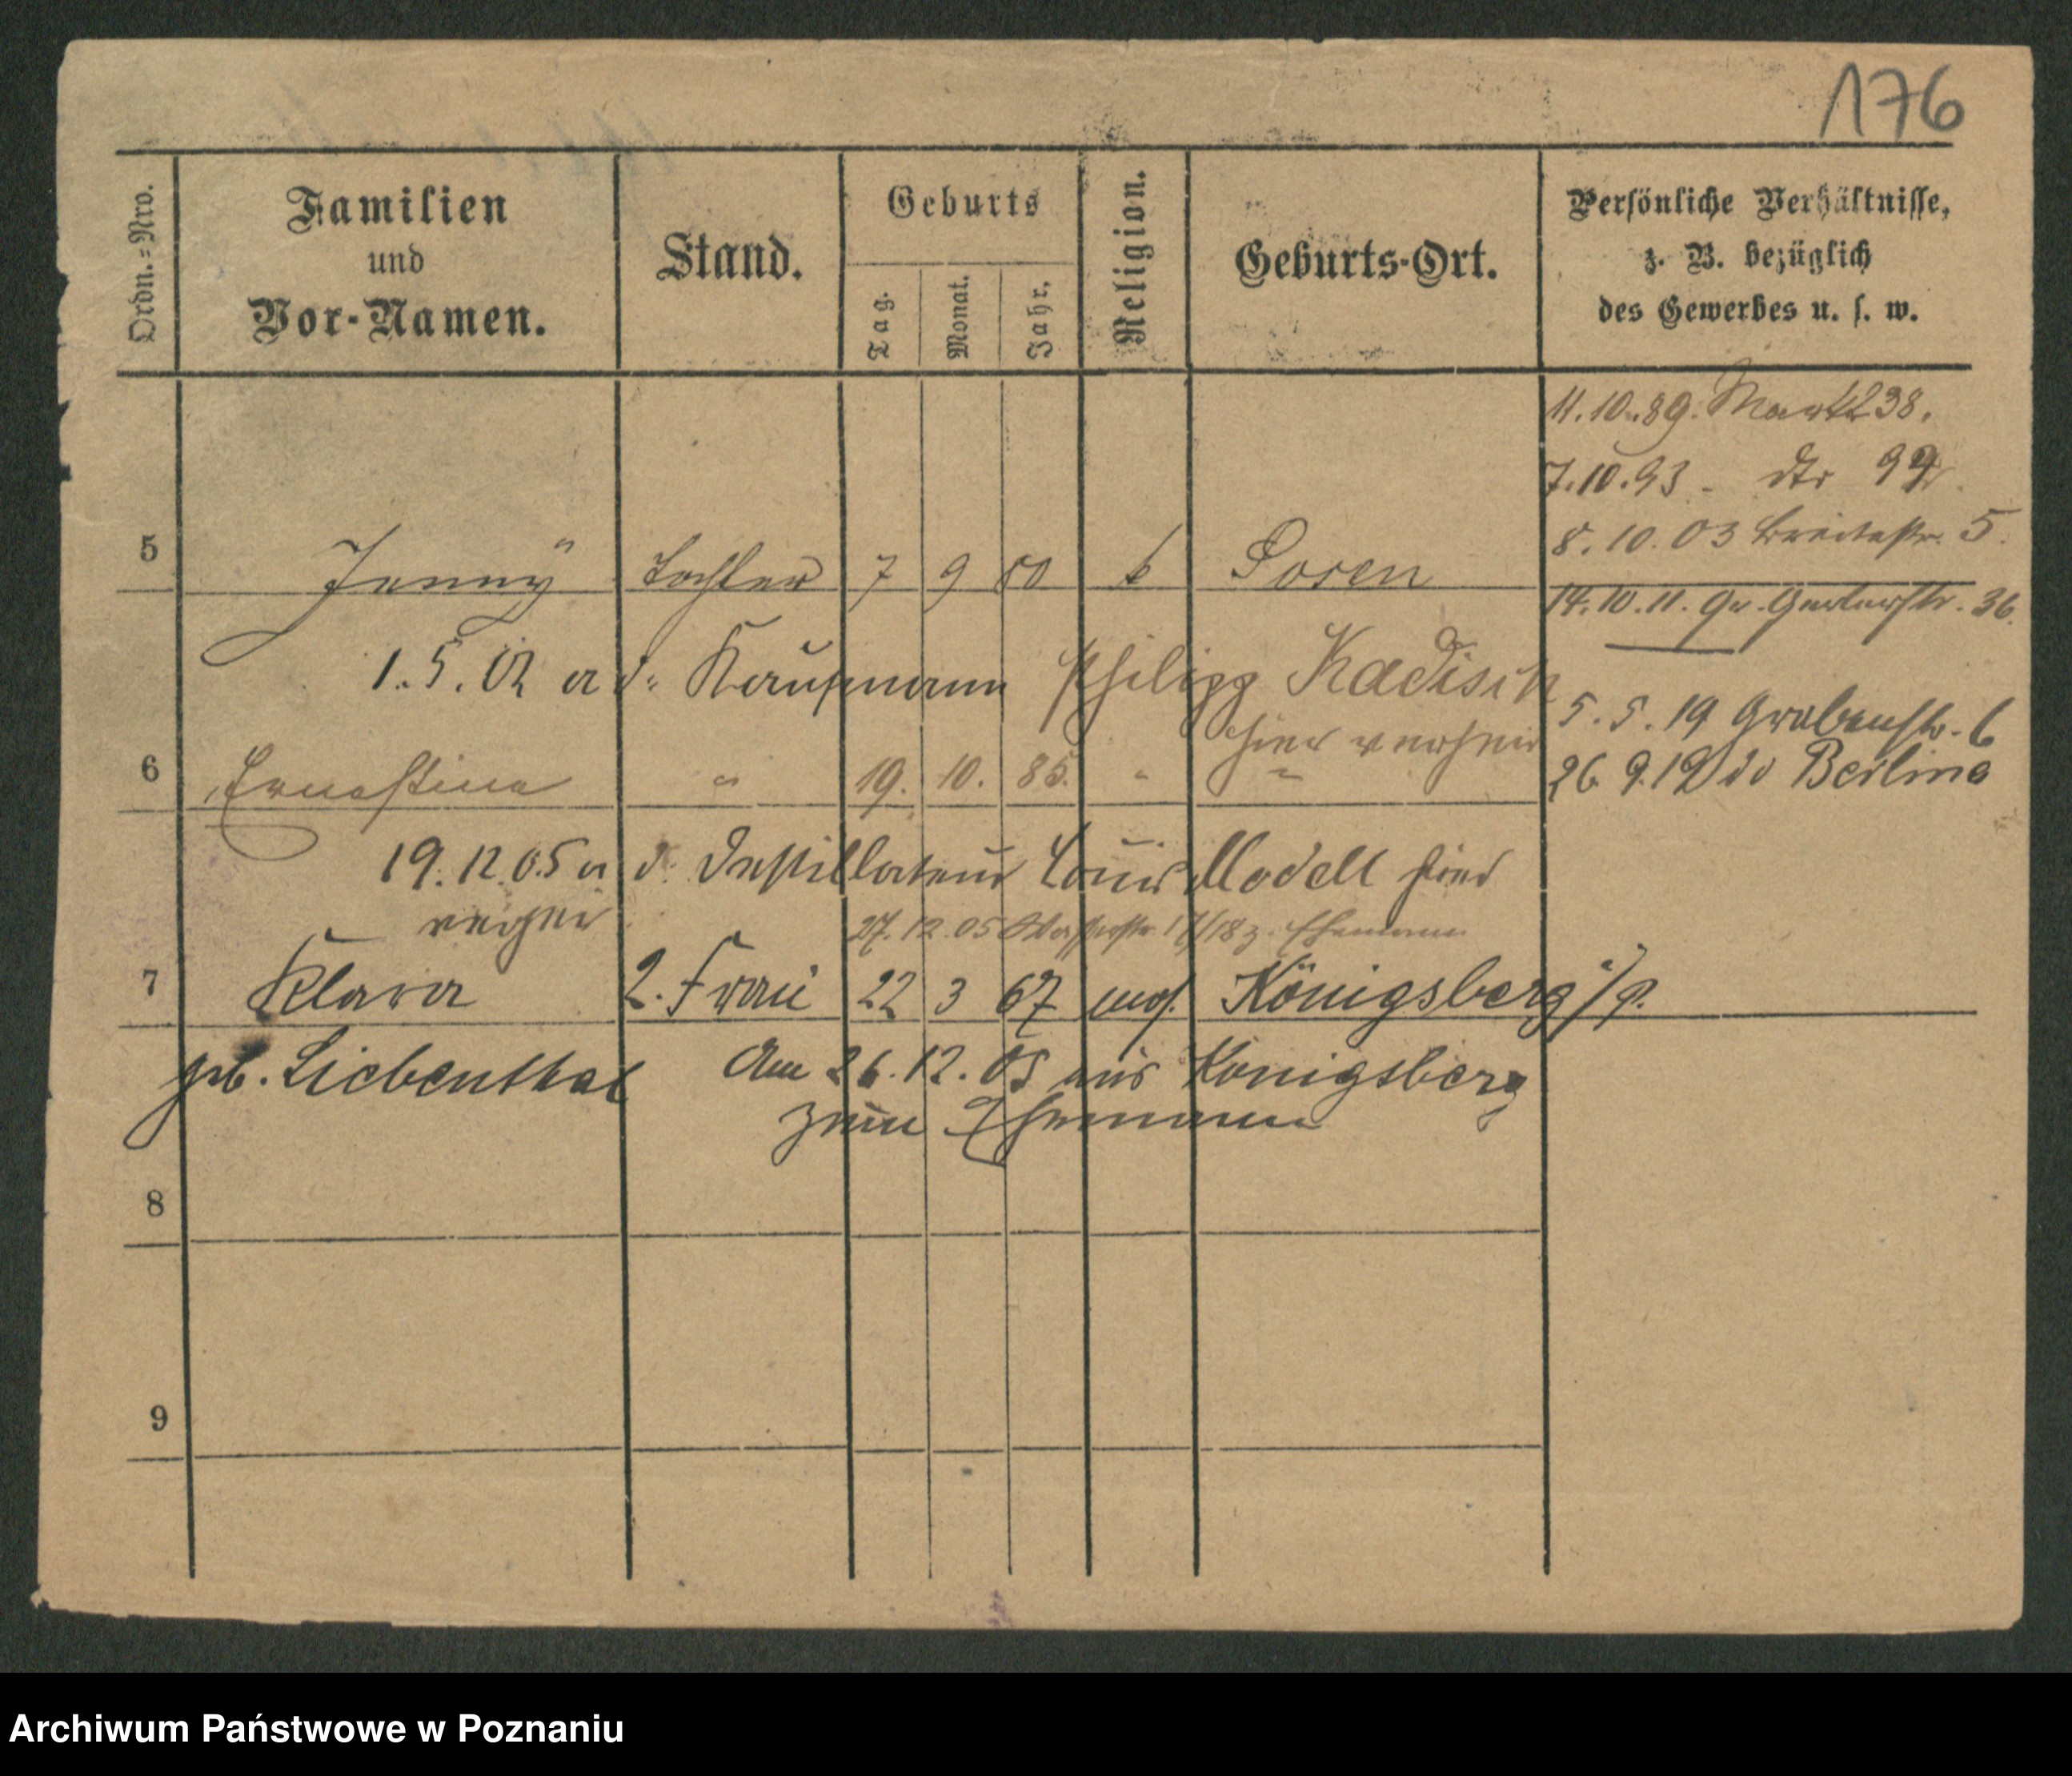 176
Ordn.=Nro.
Familien
und
Vor-Namen.
Stand.
Geburts
Tag.
Monat.
Jahr.
Religion.
Geburts-Ort.
Persönliche Verhältnisse,
z. B. bezüglich
des Gewerbes u. s. w.
11.10.89. Markt 38.
7.10.93 - dto
8.10.03 Breitestr. 5.
5 Jenny Tochter 7 9 80 Posen
14.10.11. Gr. Gerberstr. 36.
1.5.02 a d. Kaufmann Philipp Kadisch
hier verheir
5.5.19 Grabenstr. 6
6 Ernestine " 19. 10. 85. " "
26 9.19 Berlin
19.12.05 a d. Destillateur Louis Modell hier
verheir
27.12.05 17/18 z. Ehemann
7 Klara 2. Frau 22 3 67 mos. Königsberg i/p.
geb. Liebenthal Am 26.12.05 aus Königsberg
zum Ehemann
8
9
Archiwum Państwowe w Poznaniu